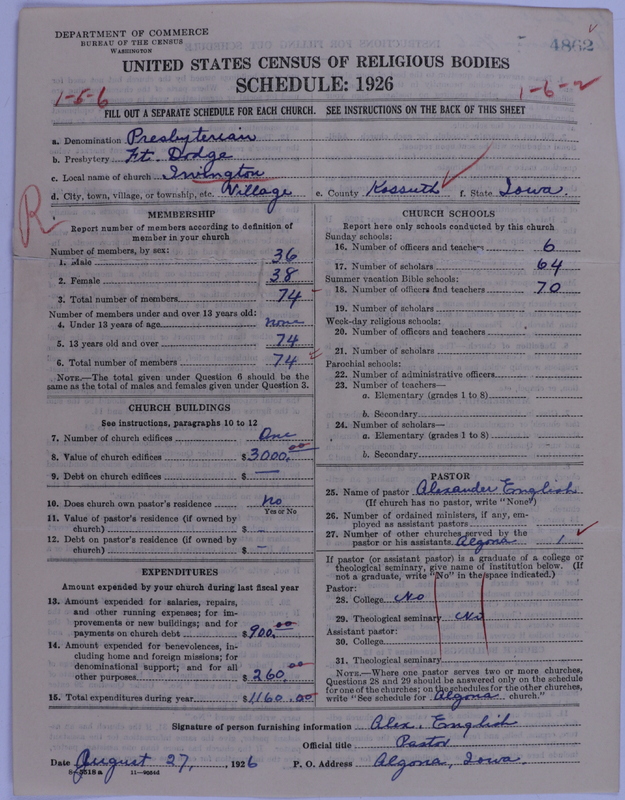 DEPARTMENT OF COMMERCE
BUREAU OF THE CENSUS
WASHINGTON
4862
UNITED STATES CENSUS OF RELIGIOUS BODIES
SCHEDULE: 1926
1-5-6
1-6-2
FILL OUT A SEPARATE SCHEDULE FOR EACH CHURCH. SEE INSTRUCTIONS ON THE BACK OF THIS SHEET
a. Denomination Presbyterian
b. Presbytery Ft. Dodge
c. Local name of church Irvington
d. City, town, village, or township, etc. Village e. County Kossuth f. State Iowa.
R
MEMBERSHIP
Report number of members according to definition of
member in your church
Number of members, by sex:
1. Male 36
2. Female 38
3. Total number of members 74
Number of members under and over 13 years old:
4. Under 13 years of age none
5. 13 years old and over 74
6. Total number of members 74
NOTE.—The total given under Question 6 should be the
same as the total of males and females given under Question 3.
CHURCH BUILDINGS
See instructions, paragraphs 10 to 12
7. Number of church edifices One
8. Value of church edifices $3000.00
9. Debt on church edifices $ —
10. Does church own pastor's residence No
Yes or No
11. Value of pastor's residence (if owned by
church) $ —
12. Debt on pastor's residence (if owned by
church) $ —
EXPENDITURES
Amount expended by your church during last fiscal year
13. Amount expended for salaries, repairs,
and other running expenses; for im-
provements or new buildings; and for
payments on church debt $900.00
14. Amount expended for benevolences, in-
cluding home and foreign missions; for
denominational support; and for all
other purposes $260.00
15. Total expenditures during year $1160.00
CHURCH SCHOOLS
Report here only schools conducted by this church
Sunday schools:
16. Number of officers and teachers 6
17. Number of scholars 64
Summer vacation Bible schools:
18. Number of officers and teachers 70
19. Number of scholars
Week-day religious schools:
20. Number of officers and teachers
21. Number of scholars
Parochial schools:
22. Number of administrative officers
23. Number of teachers—
a. Elementary (grades 1 to 8)
b. Secondary
24. Number of scholars—
a. Elementary (grades 1 to 8)
b. Secondary
PASTOR
25. Name of pastor Alexander English
(If church has no pastor, write "None")
26. Number of ordained ministers, if any, em-
ployed as assistant pastors
27. Number of other churches served by the
pastor or his assistants. Algona 1
If pastor (or assistant pastor) is a graduate of a college or
theological seminary, give name of institution below. (If
not a graduate, write "No" in the space indicated.)
Pastor:
28. College No
29. Theological seminary No
Assistant pastor:
30. College
31. Theological seminary
NOTE.—Where one pastor serves two or more churches,
Questions 28 and 29 should be answered only on the schedule
for one of the churches; on the schedules for the other churches,
write "See schedule for Algona church."
Signature of person furnishing information Alex. English
Official title Pastor
Date August 27, 1926 P. O. Address Algona, Iowa.